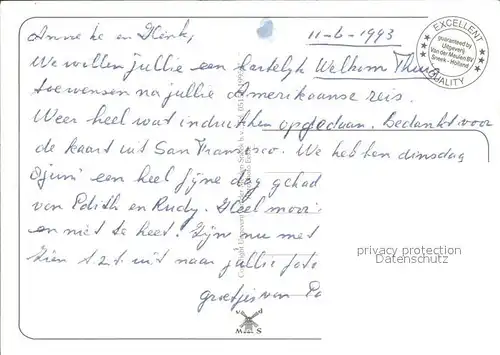 Anneke en Henk, 11-6-1993
We willen jullie een hartelijk Welkom Thuis
toewensen na jullie Amerikaanse reis.
Weer heel wat indrukken opgedaan. Bedankt voor
de kaart uit San Francisco. We hebben dinsdag
8 juni een heel fijne dag gehad
van Edith en Rudy. Heel mooi
en niet te heet. Zijn nu met
zien t.z.t. uit naar jullie foto
groetjes van
EXCELLENT
guaranteed by
Uitgeverij
Van der Meulen BV
Sneek - Holland
QUALITY
privacy protection
Datenschutz
M S